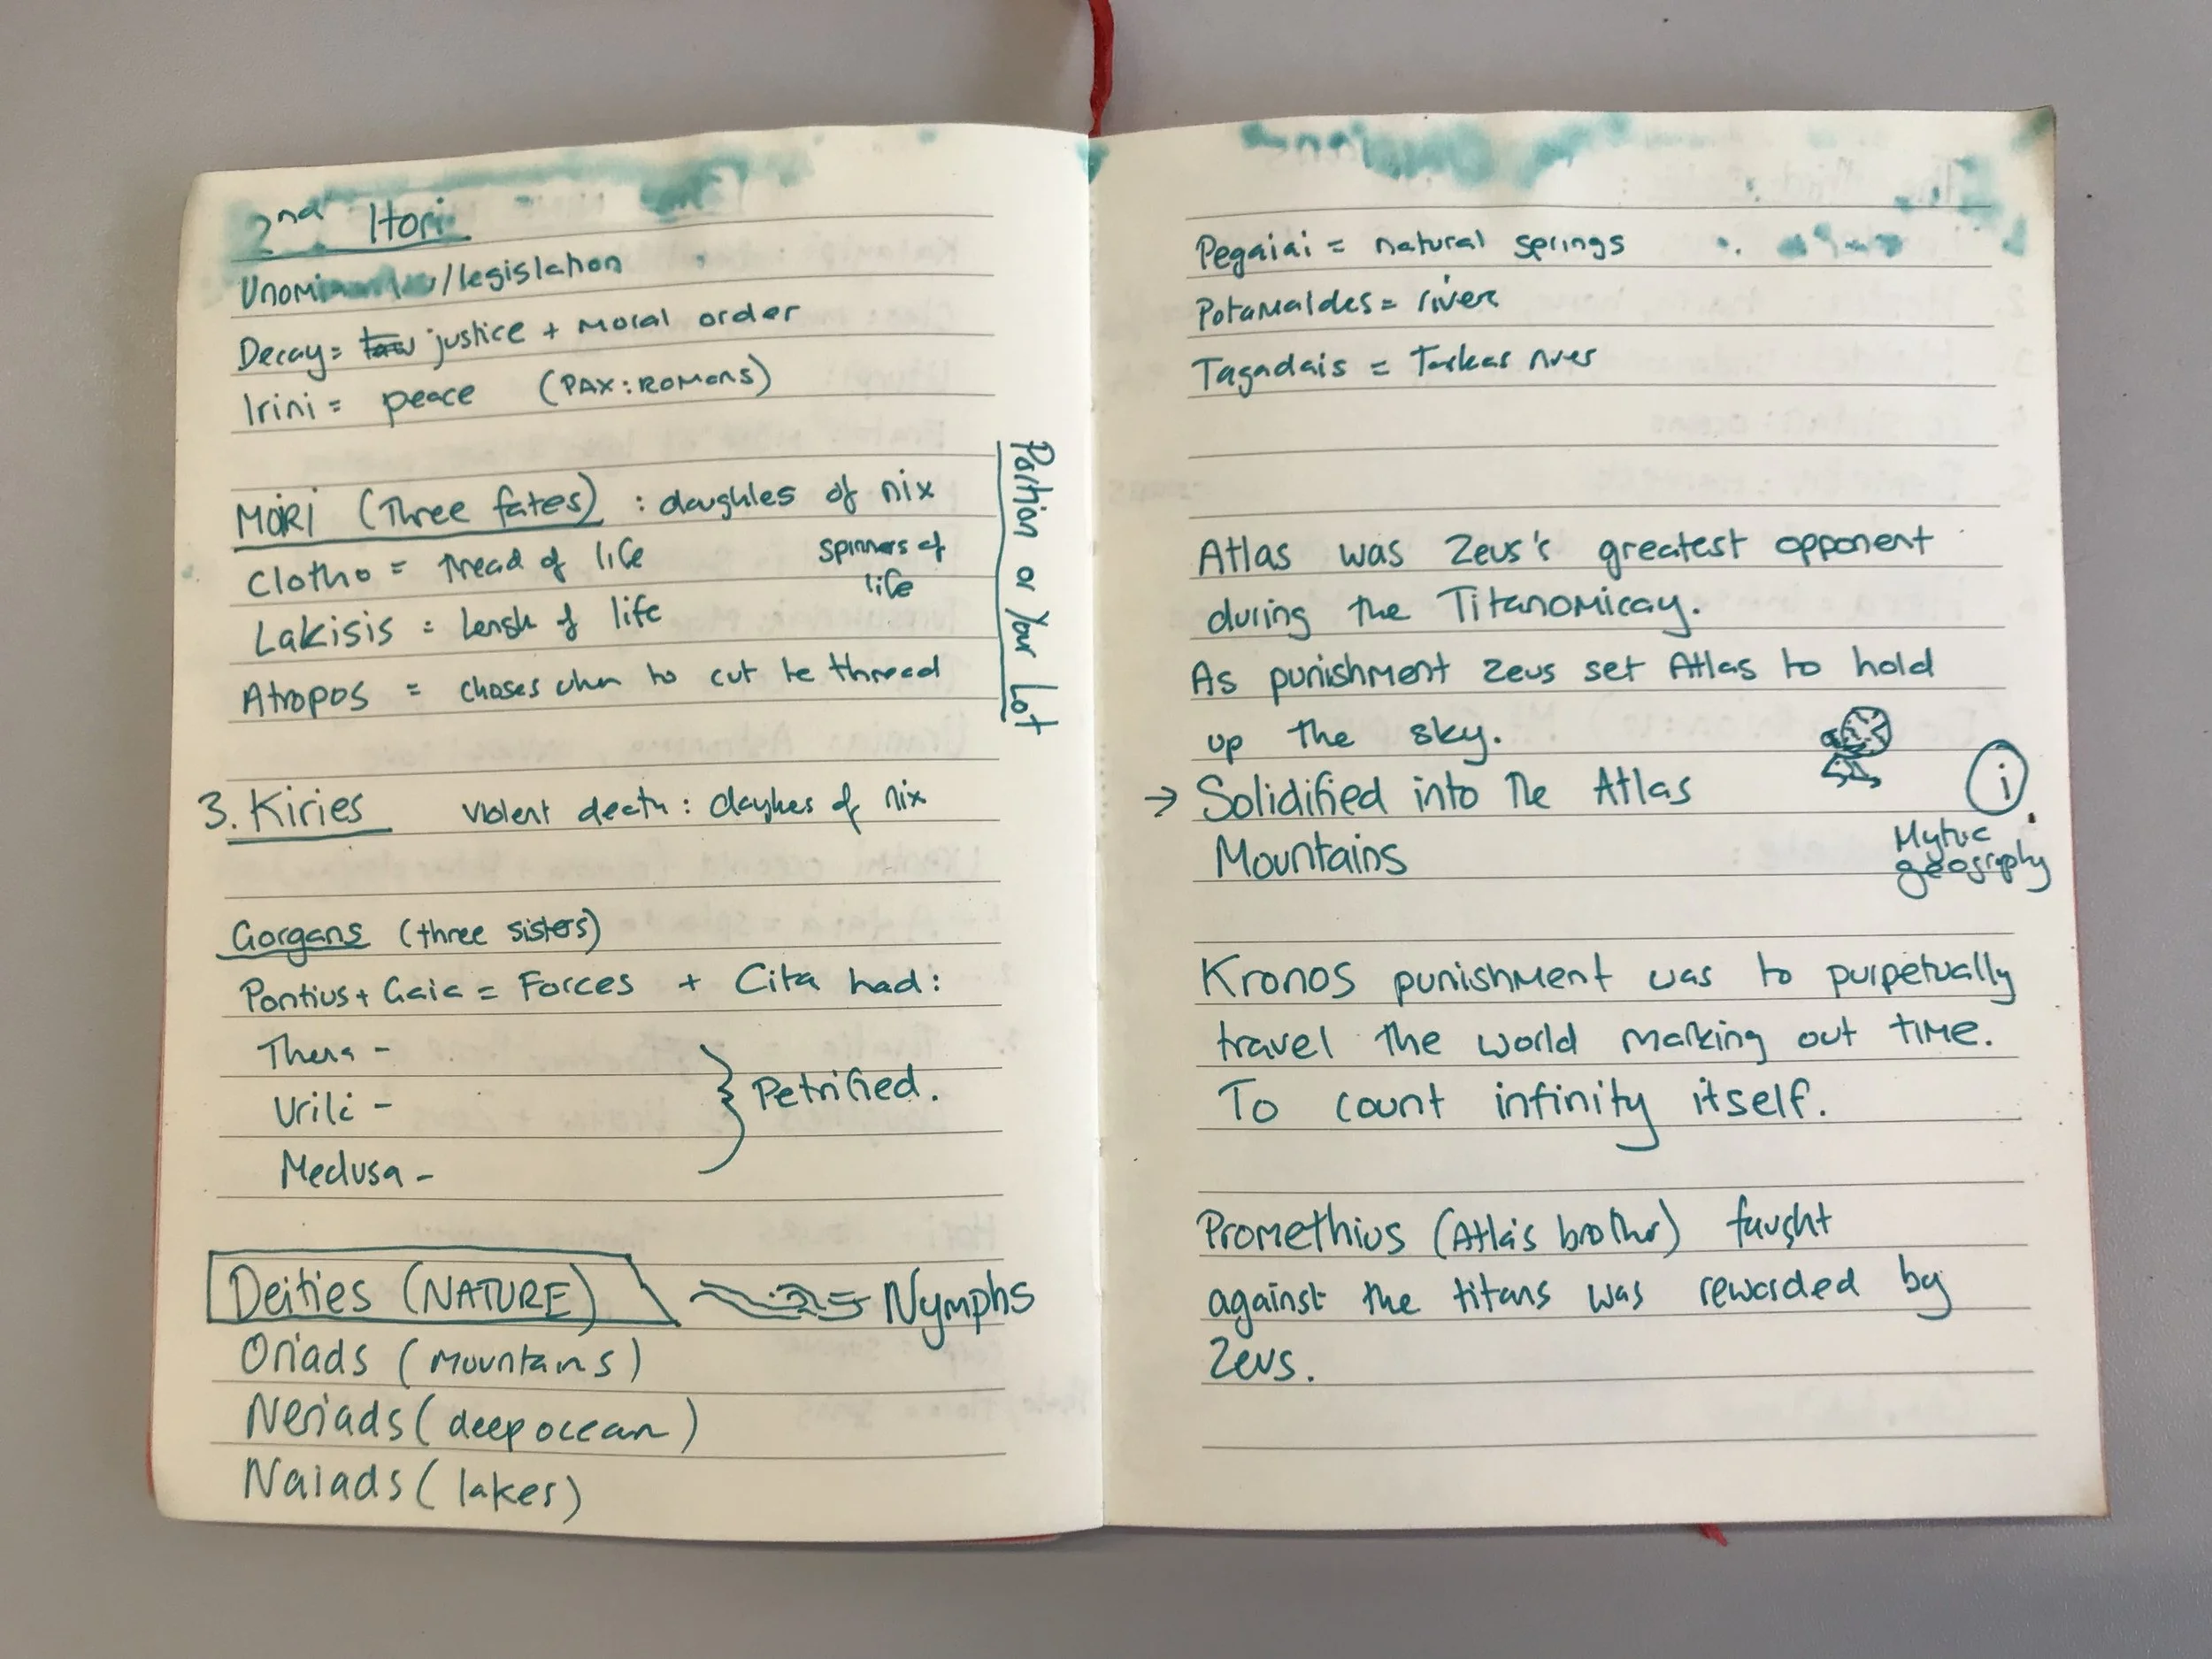 2nd Hori
Unomia /legislation
Decay = law justice + moral order
Irini = peace (PAX: ROMANS)
Portion or Your Lot
MORI (Three fates) : daughtes of nix
Clotho = thread of life spinners of life
Lakisis = length of life
Atropos = choses when to cut the thread
3. Kiries violent death : daughtes of nix
Gorgans (three sisters)
Pontius + Gaia = Forces + Cita had:
Thena -
Urili -
Medusa -
} Petrified.
Deities (NATURE) Nymphs
Oriads (mountains)
Neriads (deep ocean)
Naiads (lakes)
Pegaiai = natural springs
Potamaides = river
Tagadais = river
Atlas was Zeus's greatest opponent
during the Titanomicay.
As punishment Zeus set Atlas to hold
up the sky.
→ Solidified into the Atlas
Mountains
i
Mythic
geography
Kronos punishment was to purpetually
travel the world marking out time.
To count infinity itself.
Promethius (Atla's brother) faught
against the titans was rewarded by
Zeus.